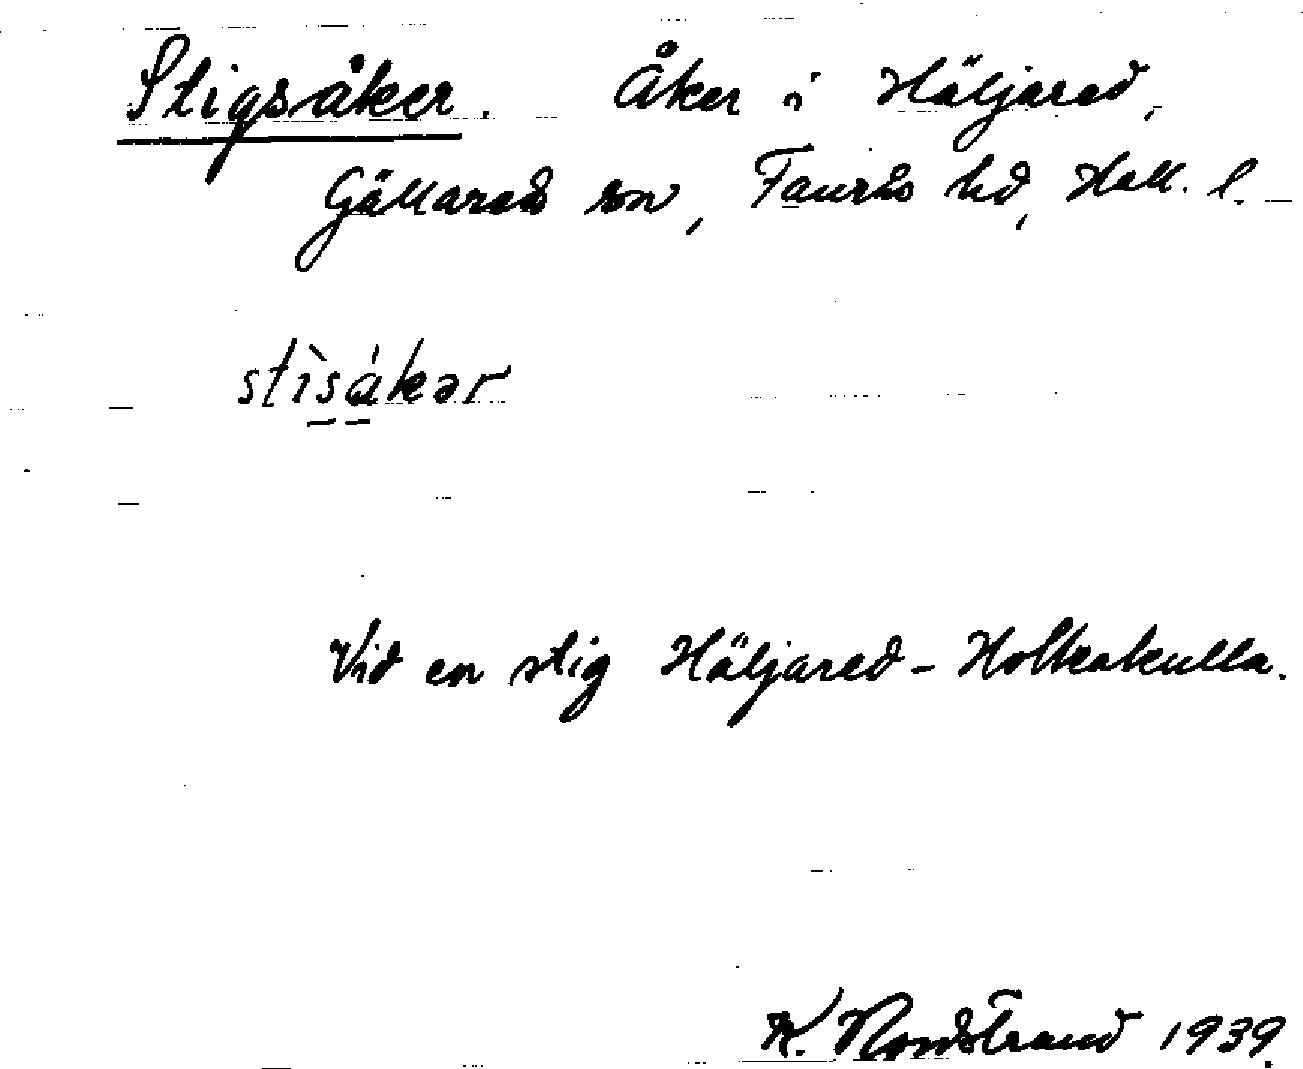 Stigsåker. Åker i Häljared,
Gällareds sn, Faurås hd, Hall. l.
stìsákər
Vid en stig Häljared - Holkakulla.
K. Nordstrand 1939.